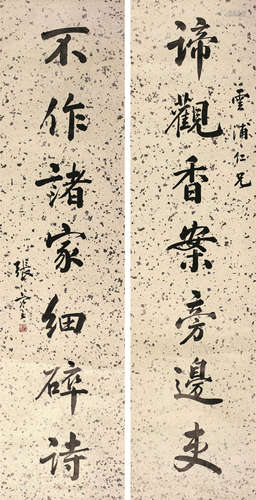 雲浦仁兄
諦觀香案旁邊吏
不作諸家細碎詩
張